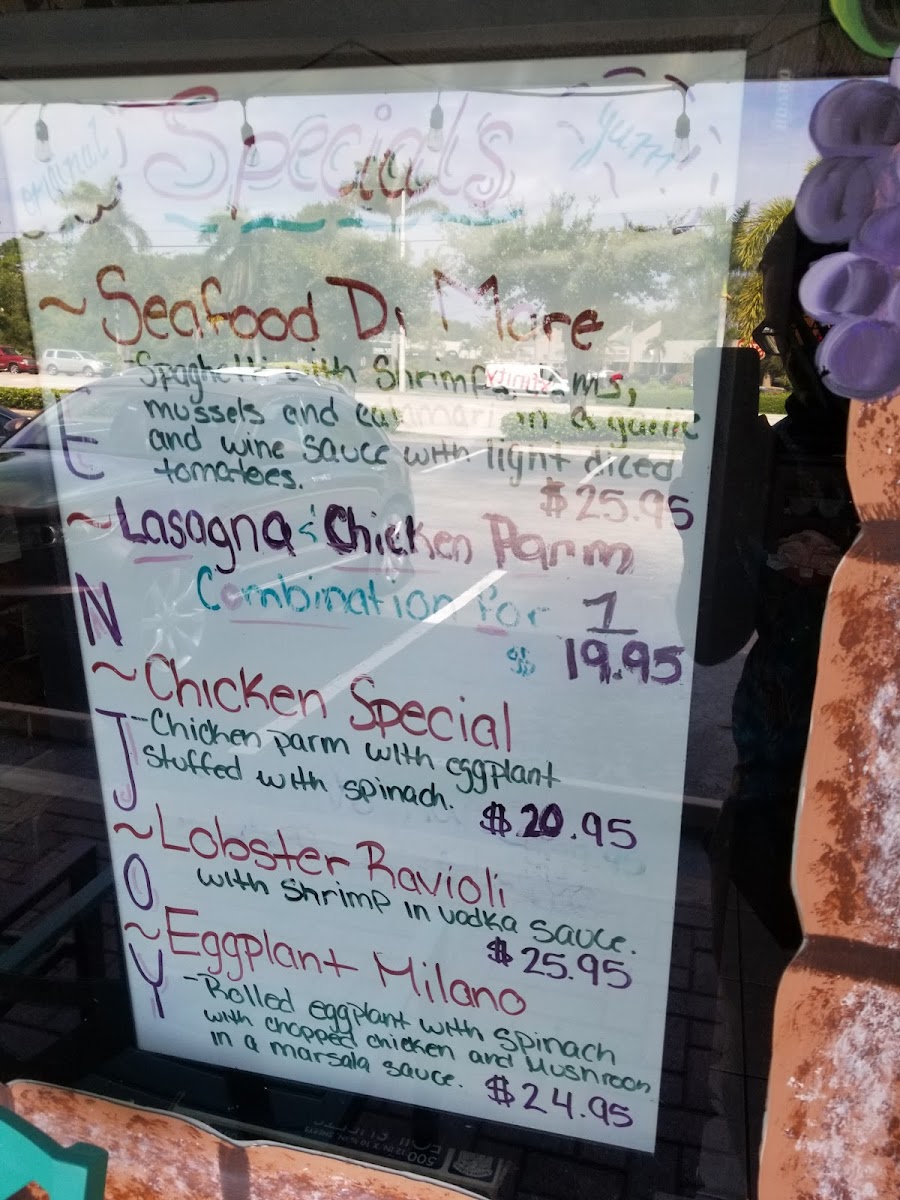 original Specials yum
~ Seafood Di More
- Spaghetti with Shrimp,
mussels and calamari in a garlic
and wine sauce with light diced
tomatoes.
$25.95
~ Lasagna & Chicken Parm
Combination for 1
$19.95
~ Chicken Special
- Chicken parm with eggplant
stuffed with spinach.
$20.95
~ Lobster Ravioli
with shrimp in vodka sauce.
$25.95
~ Eggplant Milano
- Rolled eggplant with spinach
with chopped chicken and Mushroom
in a marsala sauce.
$24.95
E
N
J
O
Y
xfinity